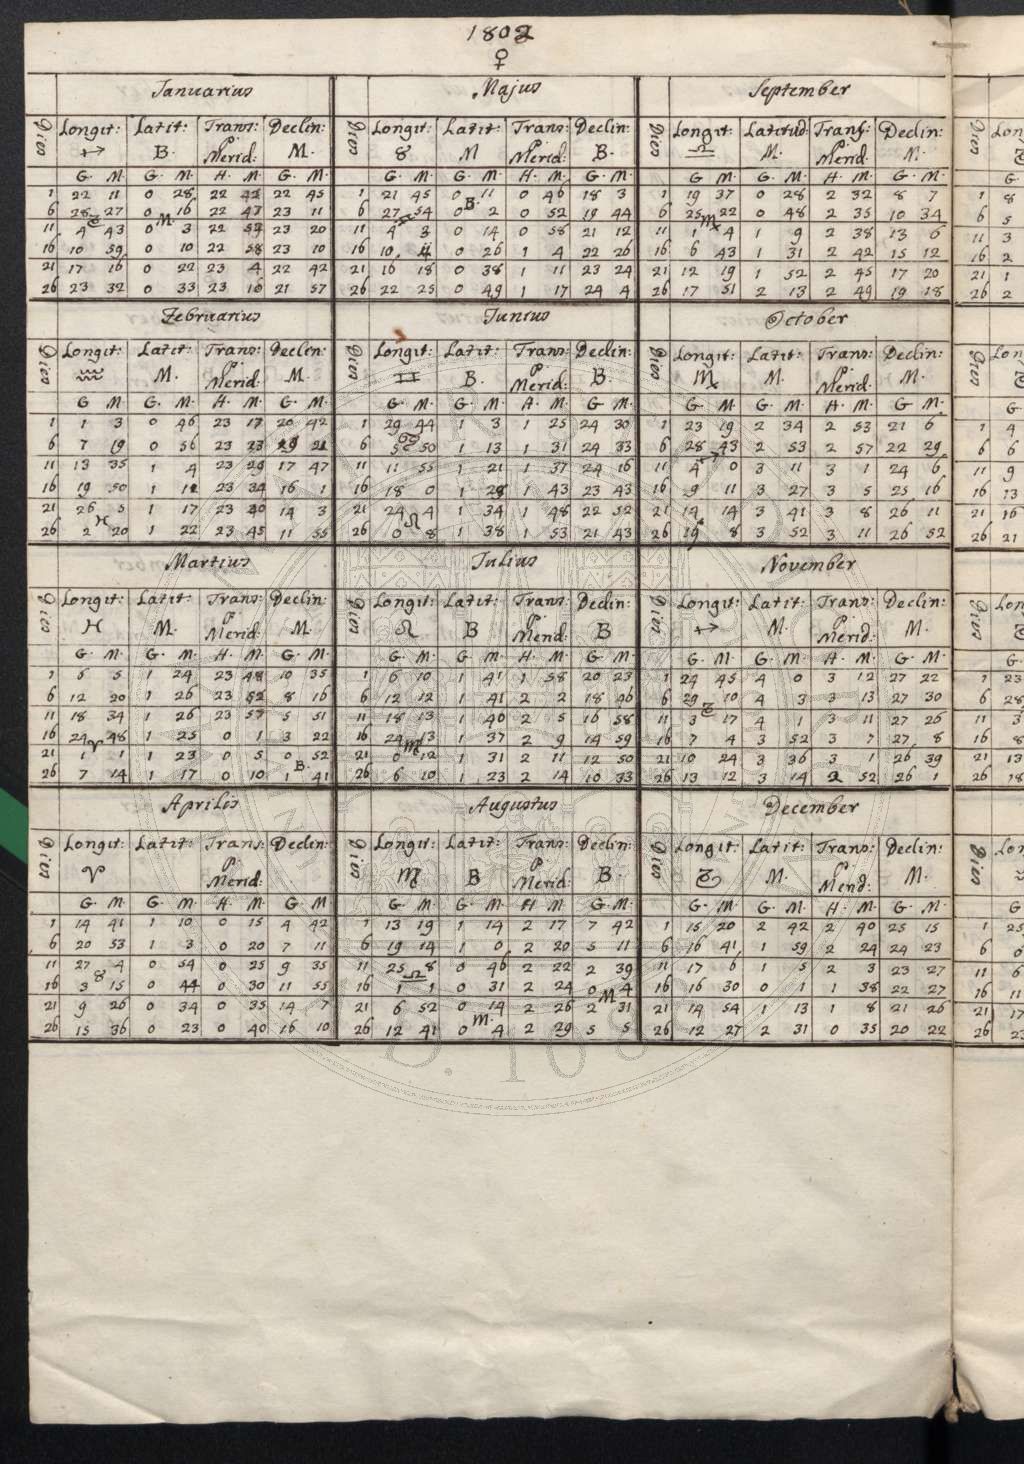 1802
♀
Ianuarius
Dies Longit: Latit: Trans: P. Merid: Declin:
♐ B. M.
G. M. G. M. H. M. G. M.
1 22 11 0 28 22 42 22 45
6 28 27 0 16 22 47 23 11
♑ M.
11 4 43 0 3 22 52 23 20
16 10 59 0 10 22 58 23 10
21 17 16 0 22 23 4 22 42
26 23 32 0 33 23 10 21 57
Februarius
Dies Longit: Latit: Trans: P. Merid: Declin:
♒ M. M.
G M. G. M. H. M. G. M.
1 1 3 0 46 23 17 20 42
6 7 19 0 56 23 23 19 21
11 13 35 1 4 23 29 17 47
16 19 50 1 11 23 34 16 1
21 26 5 1 17 23 40 14 3
♓
26 2 20 1 22 23 45 11 55
Martius
Dies Longit: Latit: Trans: P Merid: Declin:
♓ M. M.
G. M. G. M. H. M. G. M.
1 6 5 1 24 23 48 10 35
6 12 20 1 26 23 52 8 16
11 18 34 1 26 23 57 5 51
16 24 48 1 25 0 1 3 22
♈
21 1 1 1 23 0 5 0 52
B.
26 7 14 1 17 0 10 1 41
Aprilis
Dies Longit: Latit: Trans: P. Merid: Declin:
♈
G. M. G. M. H. M. G M
1 14 41 1 10 0 15 4 42
6 20 53 1 3 0 20 7 11
11 27 4 0 54 0 25 9 35
♉
16 3 15 0 44 0 30 11 55
21 9 26 0 34 0 35 14 7
26 15 36 0 23 0 40 16 10
Majus
Dies Longit: Latit: Trans: P Merid: Declin:
♉ M B.
G. M. G. M. H. M. G. M.
1 21 45 0 11 0 46 18 3
B.
6 27 54 0 2 0 52 19 44
♊
11 4 3 0 14 0 58 21 12
16 10 11 0 26 1 4 22 26
21 16 18 0 38 1 11 23 24
26 22 25 0 49 1 17 24 4
Iunius
Dies Longit: Latit: Trans: P Merid: Declin:
♊ B. B.
G. M. G. M. H. M. G M.
1 29 44 1 3 1 25 24 30
♋
6 5 50 1 13 1 31 24 33
11 11 55 1 21 1 37 24 16
16 18 0 1 28 1 43 23 43
21 24 4 1 34 1 48 22 52
♌
26 0 8 1 38 1 53 21 43
Iulius
Dies Longit: Latit: Trans: P Merid: Declin:
♌ B B
G. M. G. M. H. M. G M.
1 6 10 1 41 1 58 20 23
6 12 12 1 41 2 2 18 46
11 18 13 1 40 2 5 16 58
16 24 13 1 37 2 9 14 59
♍
21 0 12 1 31 2 11 12 50
26 6 10 1 23 2 14 10 33
Augustus
Dies Longit: Latit: Trans: P Merid: Declin:
♍ B B.
G. M. G. M. H M. G. M.
1 13 19 1 14 2 17 7 42
6 19 14 1 0 2 20 5 11
11 25 8 0 46 2 22 2 39
♎
16 1 1 0 31 2 24 0 4
M.
21 6 52 0 14 2 26 2 31
M.
26 12 41 0 4 2 29 5 5
September
Dies Longit: Latitud: Trans: P. Merid: Declin:
♎ M. M.
G M G. M. H. M. G. M.
1 19 37 0 28 2 32 8 7
6 25 22 0 48 2 35 10 34
♏
11 1 4 1 9 2 38 13 6
16 6 43 1 31 2 42 15 12
21 12 19 1 52 2 45 17 20
26 17 51 2 13 2 49 19 18
October
Dies Longit: Latit: Trans: P. Merid: Declin:
♏ M. M.
G. M. G. M. H. M. G M.
1 23 19 2 34 2 53 21 6
6 28 43 2 53 2 57 22 29
♐
11 4 0 3 11 3 1 24 6
16 9 11 3 27 3 5 25 16
21 14 14 3 41 3 8 26 11
26 19 8 3 52 3 11 26 52
November
Dies Longit: Latit: Trans: P. Merid: Declin:
♐ M. M.
G. M. G. M H. M. G. M.
1 24 45 4 0 3 12 27 22
6 29 10 4 3 3 13 27 30
♑
11 3 17 4 1 3 11 27 26
16 7 4 3 52 3 7 27 8
21 10 24 3 36 3 1 26 39
26 13 12 3 14 2 52 26 1
December
Dies Longit: Latit: Trans: P. Merid: Declin:
♑ M. M.
G. M. G. M. H. M. G. M.
1 15 20 2 42 2 40 25 15
6 16 41 1 59 2 24 24 23
11 17 6 1 5 2 3 23 27
16 16 30 0 1 1 38 22 27
21 14 54 1 13 1 8 21 26
26 12 27 2 31 0 35 20 22
Dies Lon
G.
1 8
6 5
11 3
16 2
21 1
26 2
Dies Lon
G
1 4
6 6
11 9
16 13
21 16
26 21
Dies Lon
G.
1 23
6 28
11 3
16 8
21 13
26 18
Dies Lon
♒
G
1 25
6 0
11 6
16 11
21 17
26 23